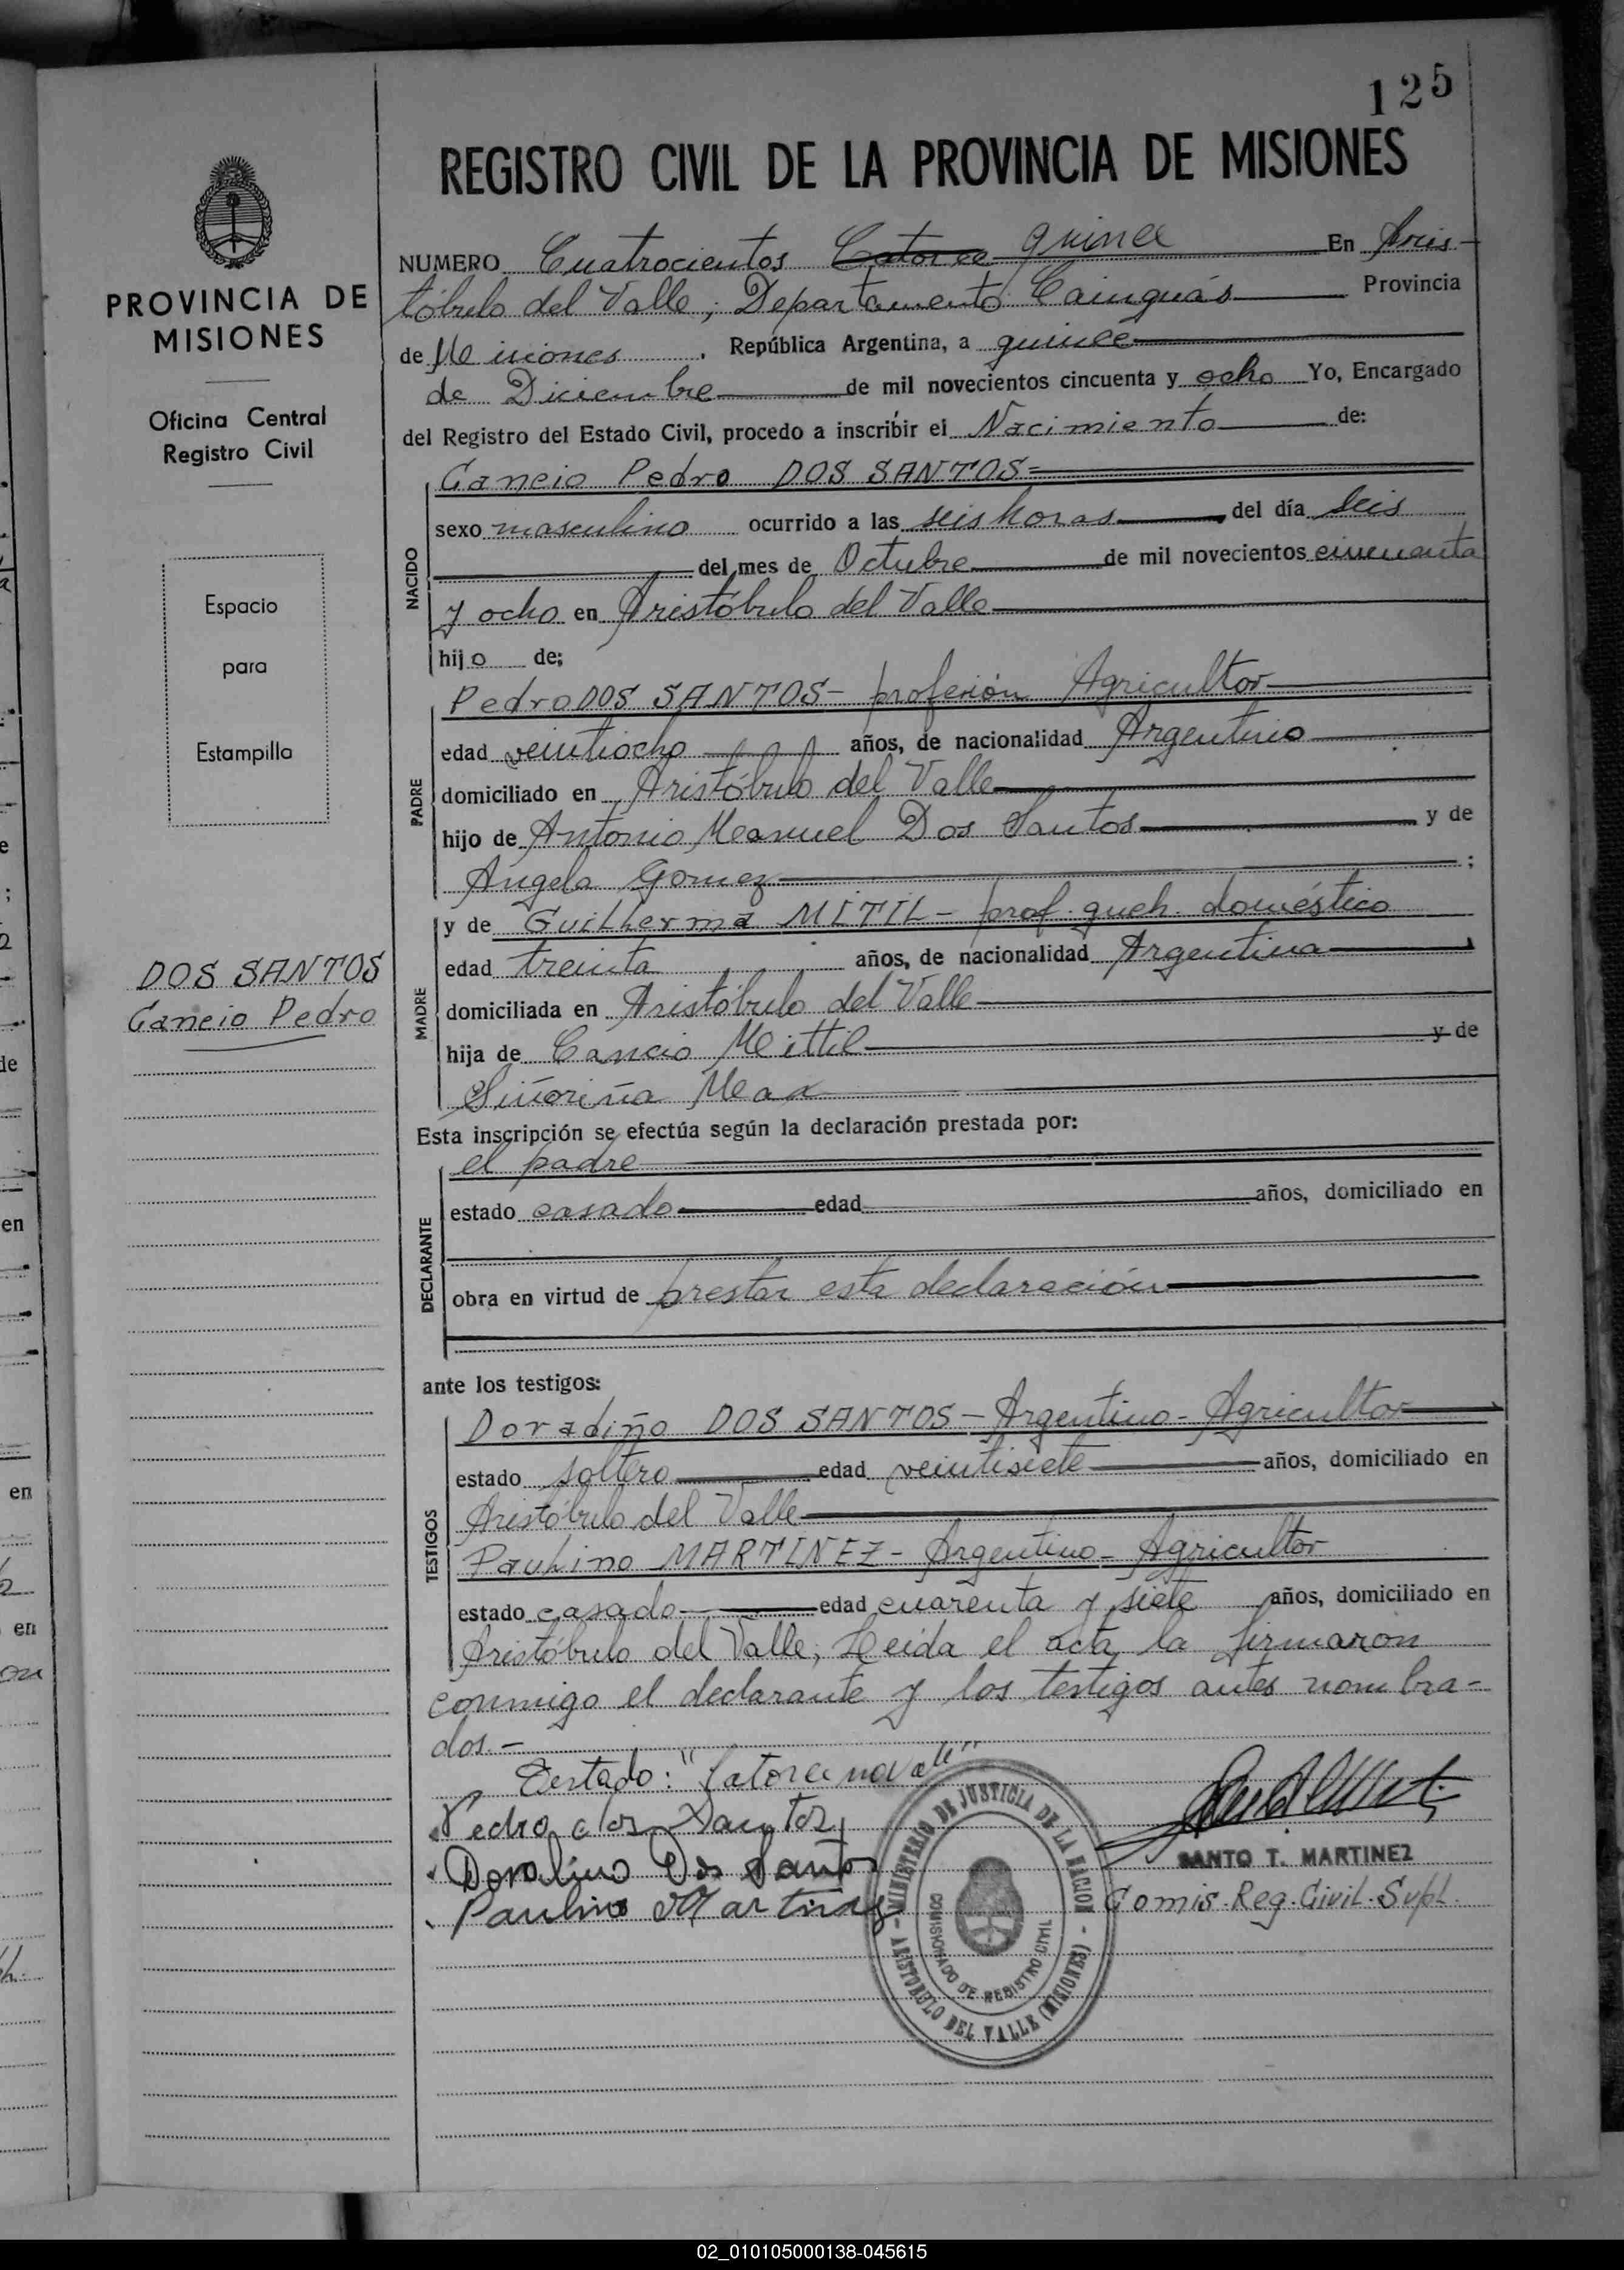 125
REGISTRO CIVIL DE LA PROVINCIA DE MISIONES
PROVINCIA DE
MISIONES
Oficina Central
Registro Civil
Espacio
para
Estampilla
DOS SANTOS
Cancio Pedro
NUMERO Cuatrocientos Catorce quince En Aris-
tóbulo del Valle, Departamento Cainguás Provincia
de Misiones. República Argentina, a quince
de Diciembre de mil novecientos cincuenta y ocho Yo, Encargado
del Registro del Estado Civil, procedo a inscribir el Nacimiento de:
NACIDO
Cancio Pedro DOS SANTOS=
sexo masculino ocurrido a las seis horas del día seis
del mes de Octubre de mil novecientos cincuenta
y ocho en Aristóbulo del Valle
hijo de;
PADRE
Pedro DOS SANTOS- profesión Agricultor
edad veintiocho años, de nacionalidad Argentino
domiciliado en Aristóbulo del Valle
hijo de Antonio Manuel Dos Santos y de
Angela Gomez ;
MADRE
y de Guillerma MITIL- prof. queh. doméstico
edad treinta años, de nacionalidad Argentina
domiciliada en Aristóbulo del Valle
hija de Cancio Mittil y de
Siñoriña Max
Esta inscripción se efectúa según la declaración prestada por:
DECLARANTE
el padre
estado casado edad años, domiciliado en
obra en virtud de prestar esta declaración
ante los testigos:
TESTIGOS
Doradiño DOS SANTOS - Argentino - Agricultor
estado soltero edad veintisiete años, domiciliado en
Aristóbulo del Valle
Paulino MARTINEZ - Argentino - Agricultor
estado casado edad cuarenta y siete años, domiciliado en
Aristóbulo del Valle; Leida el acta la firmaron
conmigo el declarante y los testigos antes nombra-
dos.-
Testado: "Catorce no vale"
Pedro dos Santos
Doralino Dos Santos
Paulino Martinez
SANTO T. MARTINEZ
Comis. Reg. Civil. Supl.
MINISTERIO DE JUSTICIA DE LA NACION
COMISIONADO DE REGISTRO CIVIL
- ARISTOBULO DEL VALLE (MISIONES) -
en
en
en
02_010105000138-045615